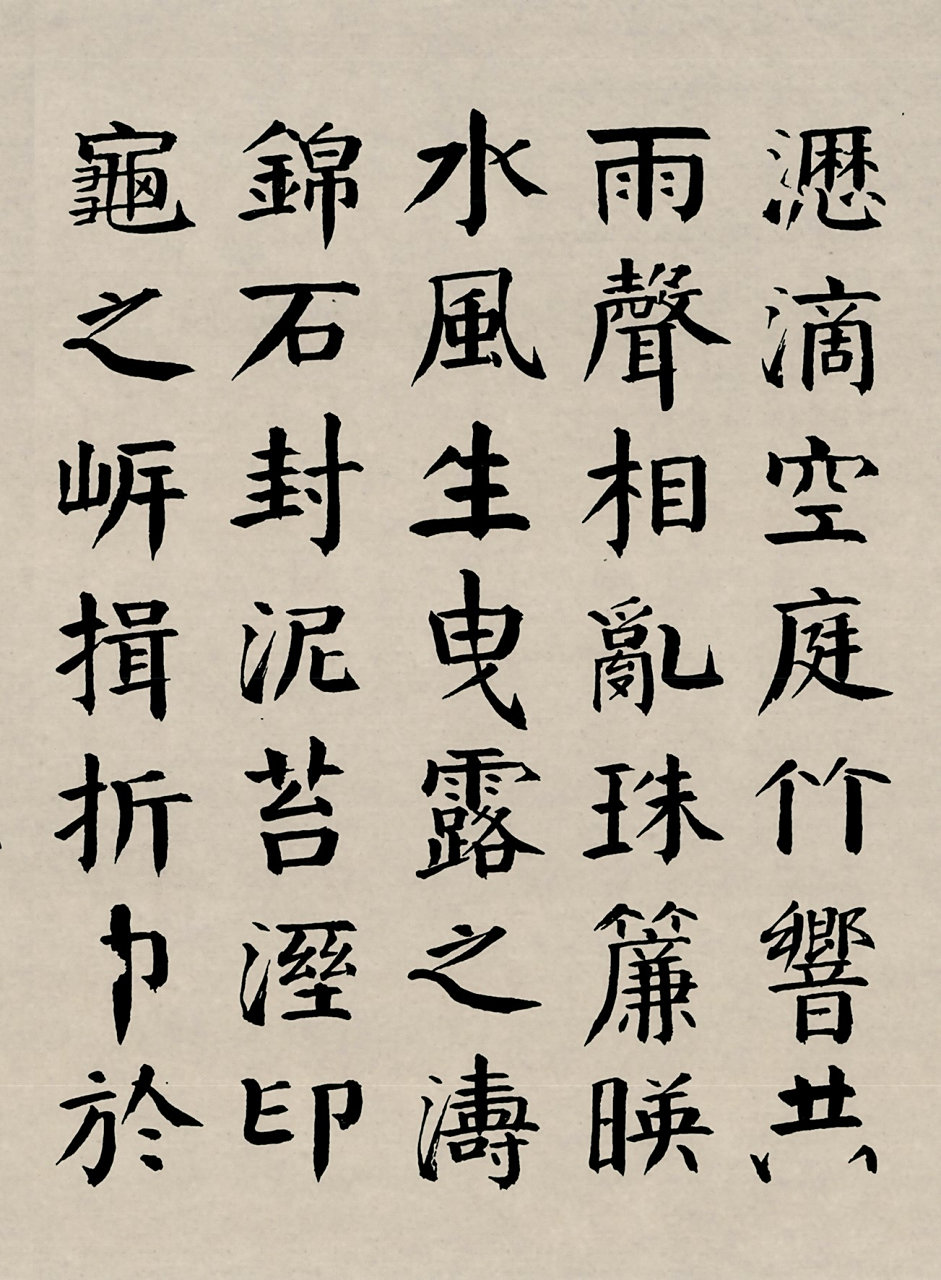 瀝滴空庭竹響共
雨聲相亂珠簾暎
水風生曳露之濤
錦石封泥苔溼印
龜之揖折巾於